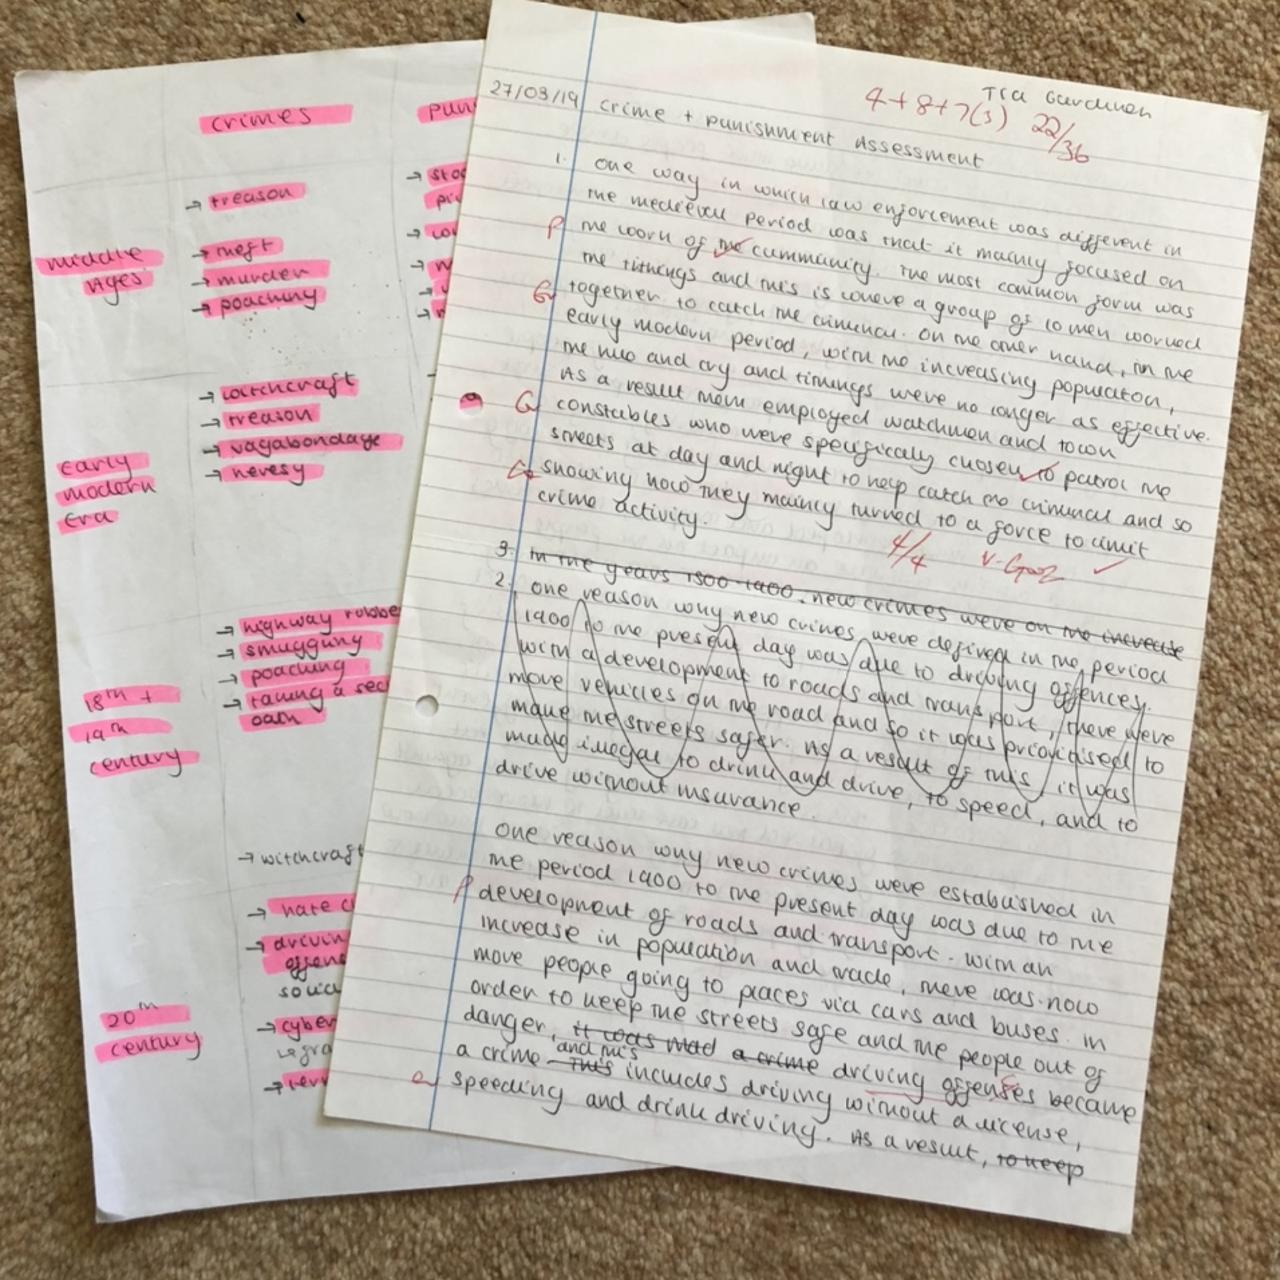 crimes
pun
→ treason
middle
ages
→ theft
→ murder
→ poaching
→ stoc
→ witchcraft
→ treason
→ vagabondage
→ heresy
Early
modern
Era
→ highway robbe
→ smuggling
→ poaching
→ taking a sec
oath
18th +
19th
century
→ witchcraft
→ hate c
→ drivin
offens
socia
→ cyber
20th
century
27/03/19
Tia Gardiner
4+8+7(3) 22/36
crime + punishment Assessment
1. one way in which law enforcement was different in
the medieval period was that it mainly focused on
P the work of the community. The most common form was
the tithings and this is where a group of 10 men worked
E together to catch the criminal. On the other hand, in the
early modern period, with the increasing population,
the hue and cry and tithings were no longer as effective.
As a result them employed watchmen and town
constables who were specifically chosen to patrol the
streets at day and night to help catch the criminal and so
showing how they mainly turned to a force to limit
crime activity.
4/4 V-Good
3. In the years 1500-1900, new crimes were on the increase
2. one reason why new crimes were defined in the period
1900 to the present day was due to driving offences.
with a development to roads and transport, there were
more vehicles on the road and so it was prioritised to
make the streets safer. As a result of this, it was
made illegal to drink and drive, to speed, and to
drive without insurance.
one reason why new crimes were established in
the period 1900 to the present day was due to the
P development of roads and transport. With an
increase in population and trade, there was now
more people going to places via cars and buses. In
order to keep the streets safe and the people out of
danger, it was mad a crime driving offenses became
a crime This and this includes driving without a license,
speeding and drink driving. As a result, to keep